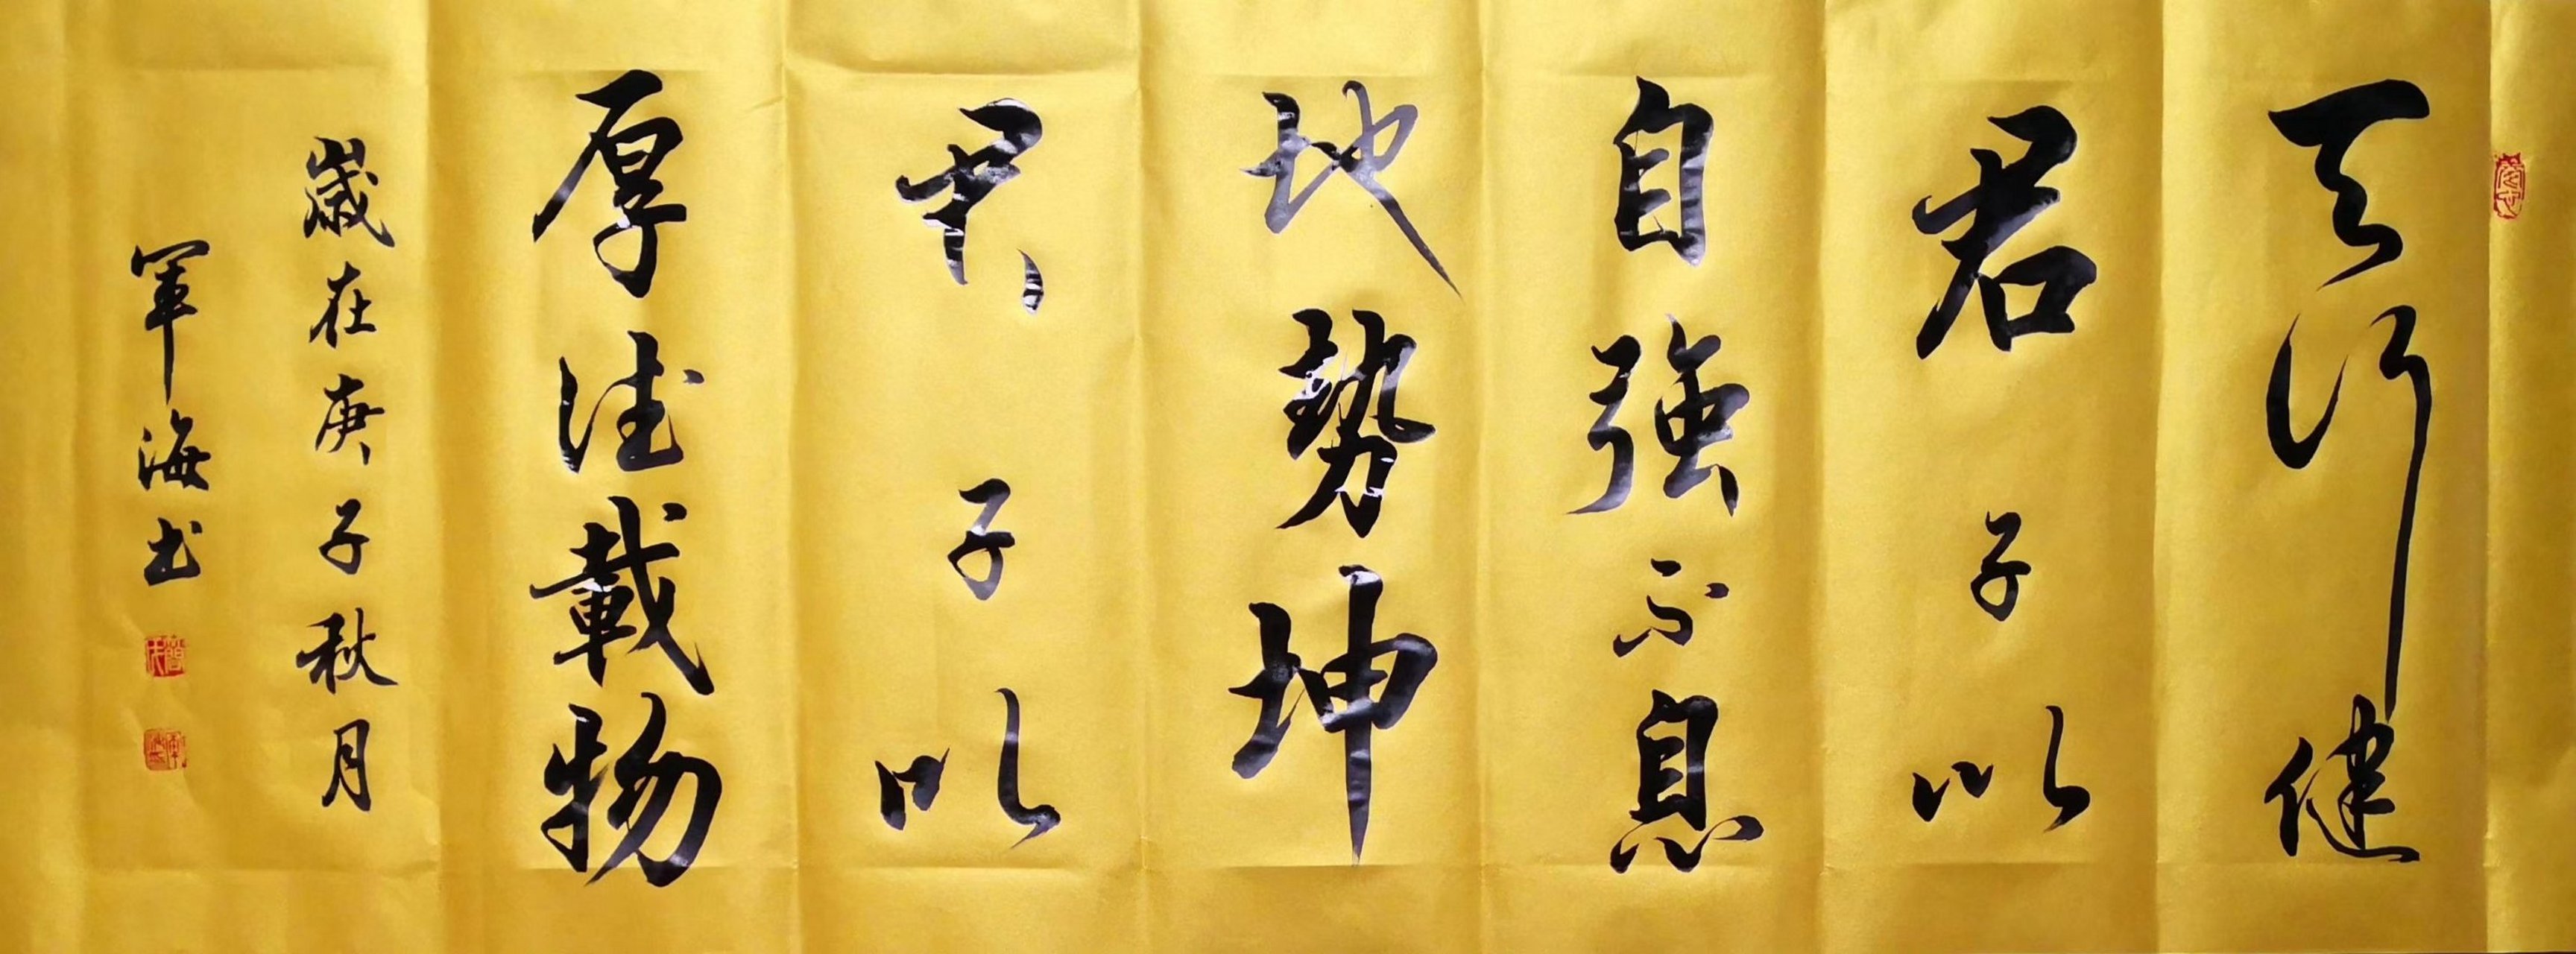 天行健
君子以
自強不息
地勢坤
君子以
厚德載物
歲在庚子秋月
軍海书